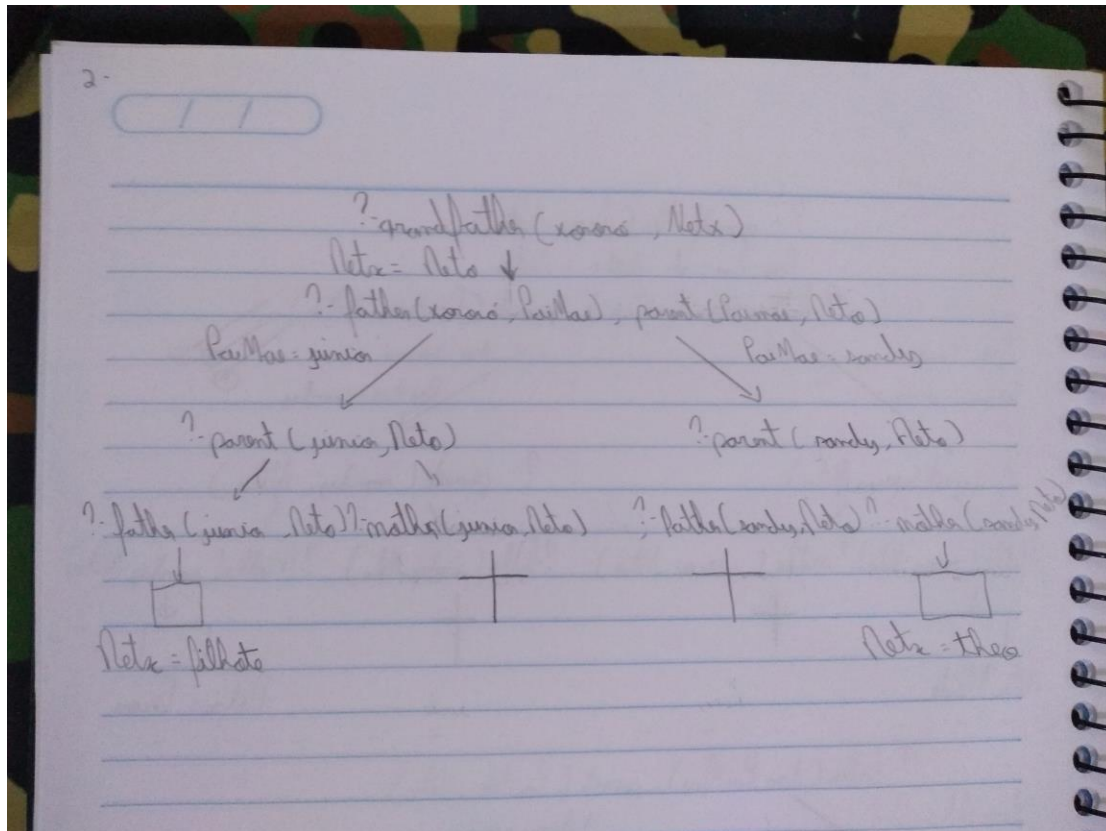 2-
/ /
?- grandfather (xororó, Netx)
Netx = Neto
?- father (xororó, PaiMae), parent (Paimae, Neto)
PaiMae = júnior PaiMae = sandy
?- parent (júnior, Neto) ?- parent (sandy, Neto)
?- father (junior, Neto) ?- mother (junior, Neto) ?- father (sandy, Neto) ?- mother (sandy, Neto)
Netx = filhote Netx = theo